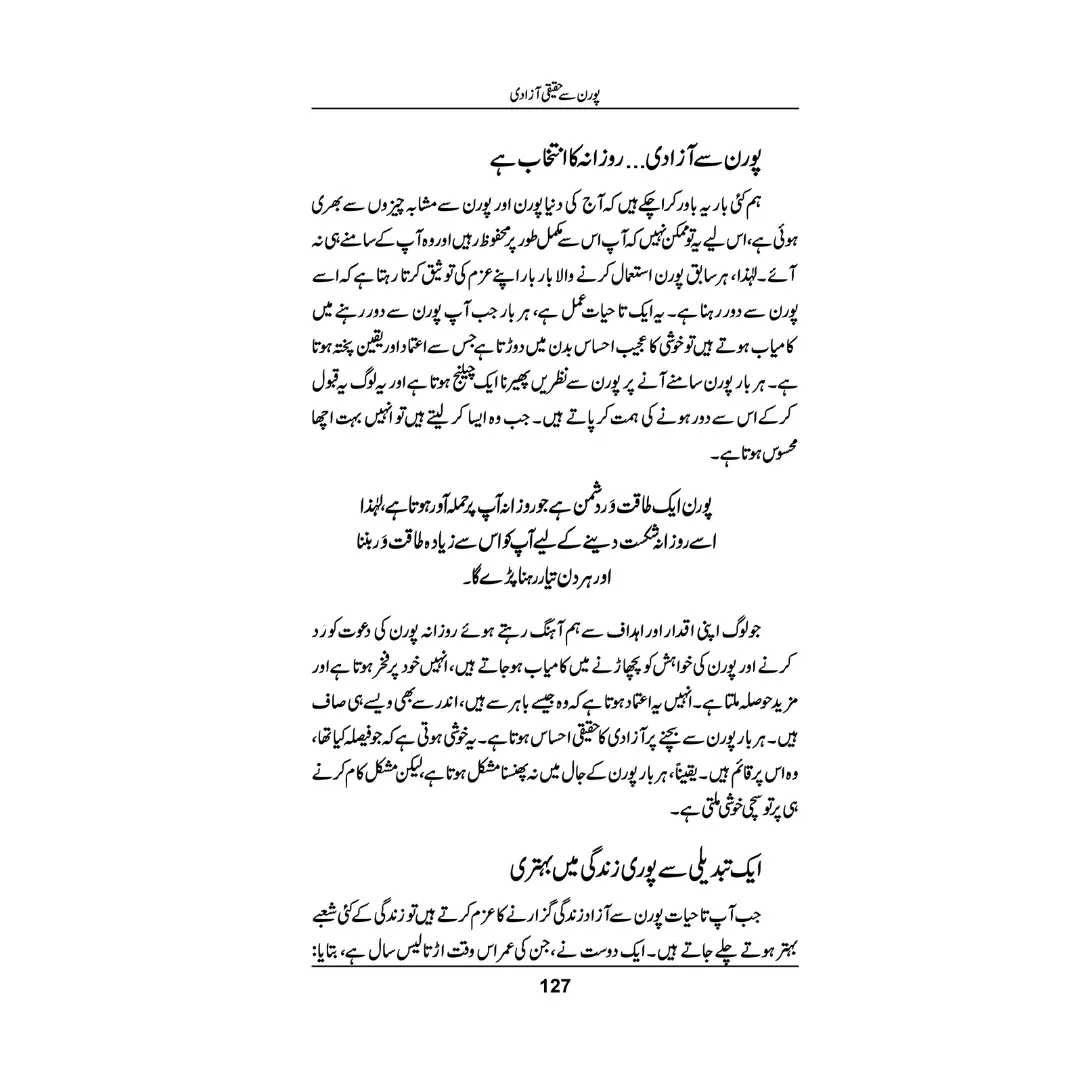 پورن سے حقیقی آزادی
پورن سے آزادی... روزانہ کا انتخاب ہے
ہم کئی بار یہ باور کرا چکے ہیں کہ آج کی دنیا پورن اور پورن سے مشابہ چیزوں سے بھری
ہوئی ہے، اس لیے یہ تو ممکن نہیں کہ آپ اس سے مکمل طور پر محفوظ رہیں اور وہ آپ کے سامنے ہی نہ
آئے۔ لہٰذا، ہر سابق پورن استعمال کرنے والا بار بار اپنے عزم کی توثیق کرتا رہتا ہے کہ اسے
پورن سے دور رہنا ہے۔ یہ ایک تا حیات عمل ہے، ہر بار جب آپ پورن سے دور رہنے میں
کامیاب ہوتے ہیں تو خوشی کا عجیب احساس بدن میں دوڑتا ہے جس سے اعتماد اور یقین پختہ ہوتا
ہے۔ ہر بار پورن سامنے آنے پر پورن سے نظریں پھیرنا ایک چیلنج ہوتا ہے اور یہ لوگ یہ قبول
کر کے اس سے دور ہونے کی ہمت کر پاتے ہیں۔ جب وہ ایسا کر لیتے ہیں تو انہیں بہت اچھا
محسوس ہوتا ہے۔
پورن ایک طاقت وَر دشمن ہے جو روزانہ آپ پر حملہ آور ہوتا ہے، لہٰذا
اسے روزانہ شکست دینے کے لیے آپ کو اس سے زیادہ طاقت وَر بننا
اور ہر دن تیار رہنا پڑے گا۔
جو لوگ اپنی اقدار اور اہداف سے ہم آہنگ رہتے ہوئے روزانہ پورن کی دعوت کو رَد
کرنے اور پورن کی خواہش کو پچھاڑنے میں کامیاب ہو جاتے ہیں، انہیں خود پر فخر ہوتا ہے اور
مزید حوصلہ ملتا ہے۔ انہیں یہ اعتماد ہوتا ہے کہ وہ جیسے باہر سے ہیں، اندر سے بھی ویسے ہی صاف
ہیں۔ ہر بار پورن سے بچنے پر آزادی کا حقیقی احساس ہوتا ہے۔ یہ خوشی ہوتی ہے کہ جو فیصلہ کیا تھا،
وہ اس پر قائم ہیں۔ یقیناً، ہر بار پورن کے جال میں نہ پھنسنا مشکل ہوتا ہے، لیکن مشکل کام کرنے
ہی پر تو سچی خوشی ملتی ہے۔
ایک تبدیلی سے پوری زندگی میں بہتری
جب آپ تا حیات پورن سے آزاد زندگی گزارنے کا عزم کرتے ہیں تو زندگی کے کئی شعبے
بہتر ہوتے چلے جاتے ہیں۔ ایک دوست نے، جن کی عمر اس وقت اڑتالیس سال ہے، بتایا:
127